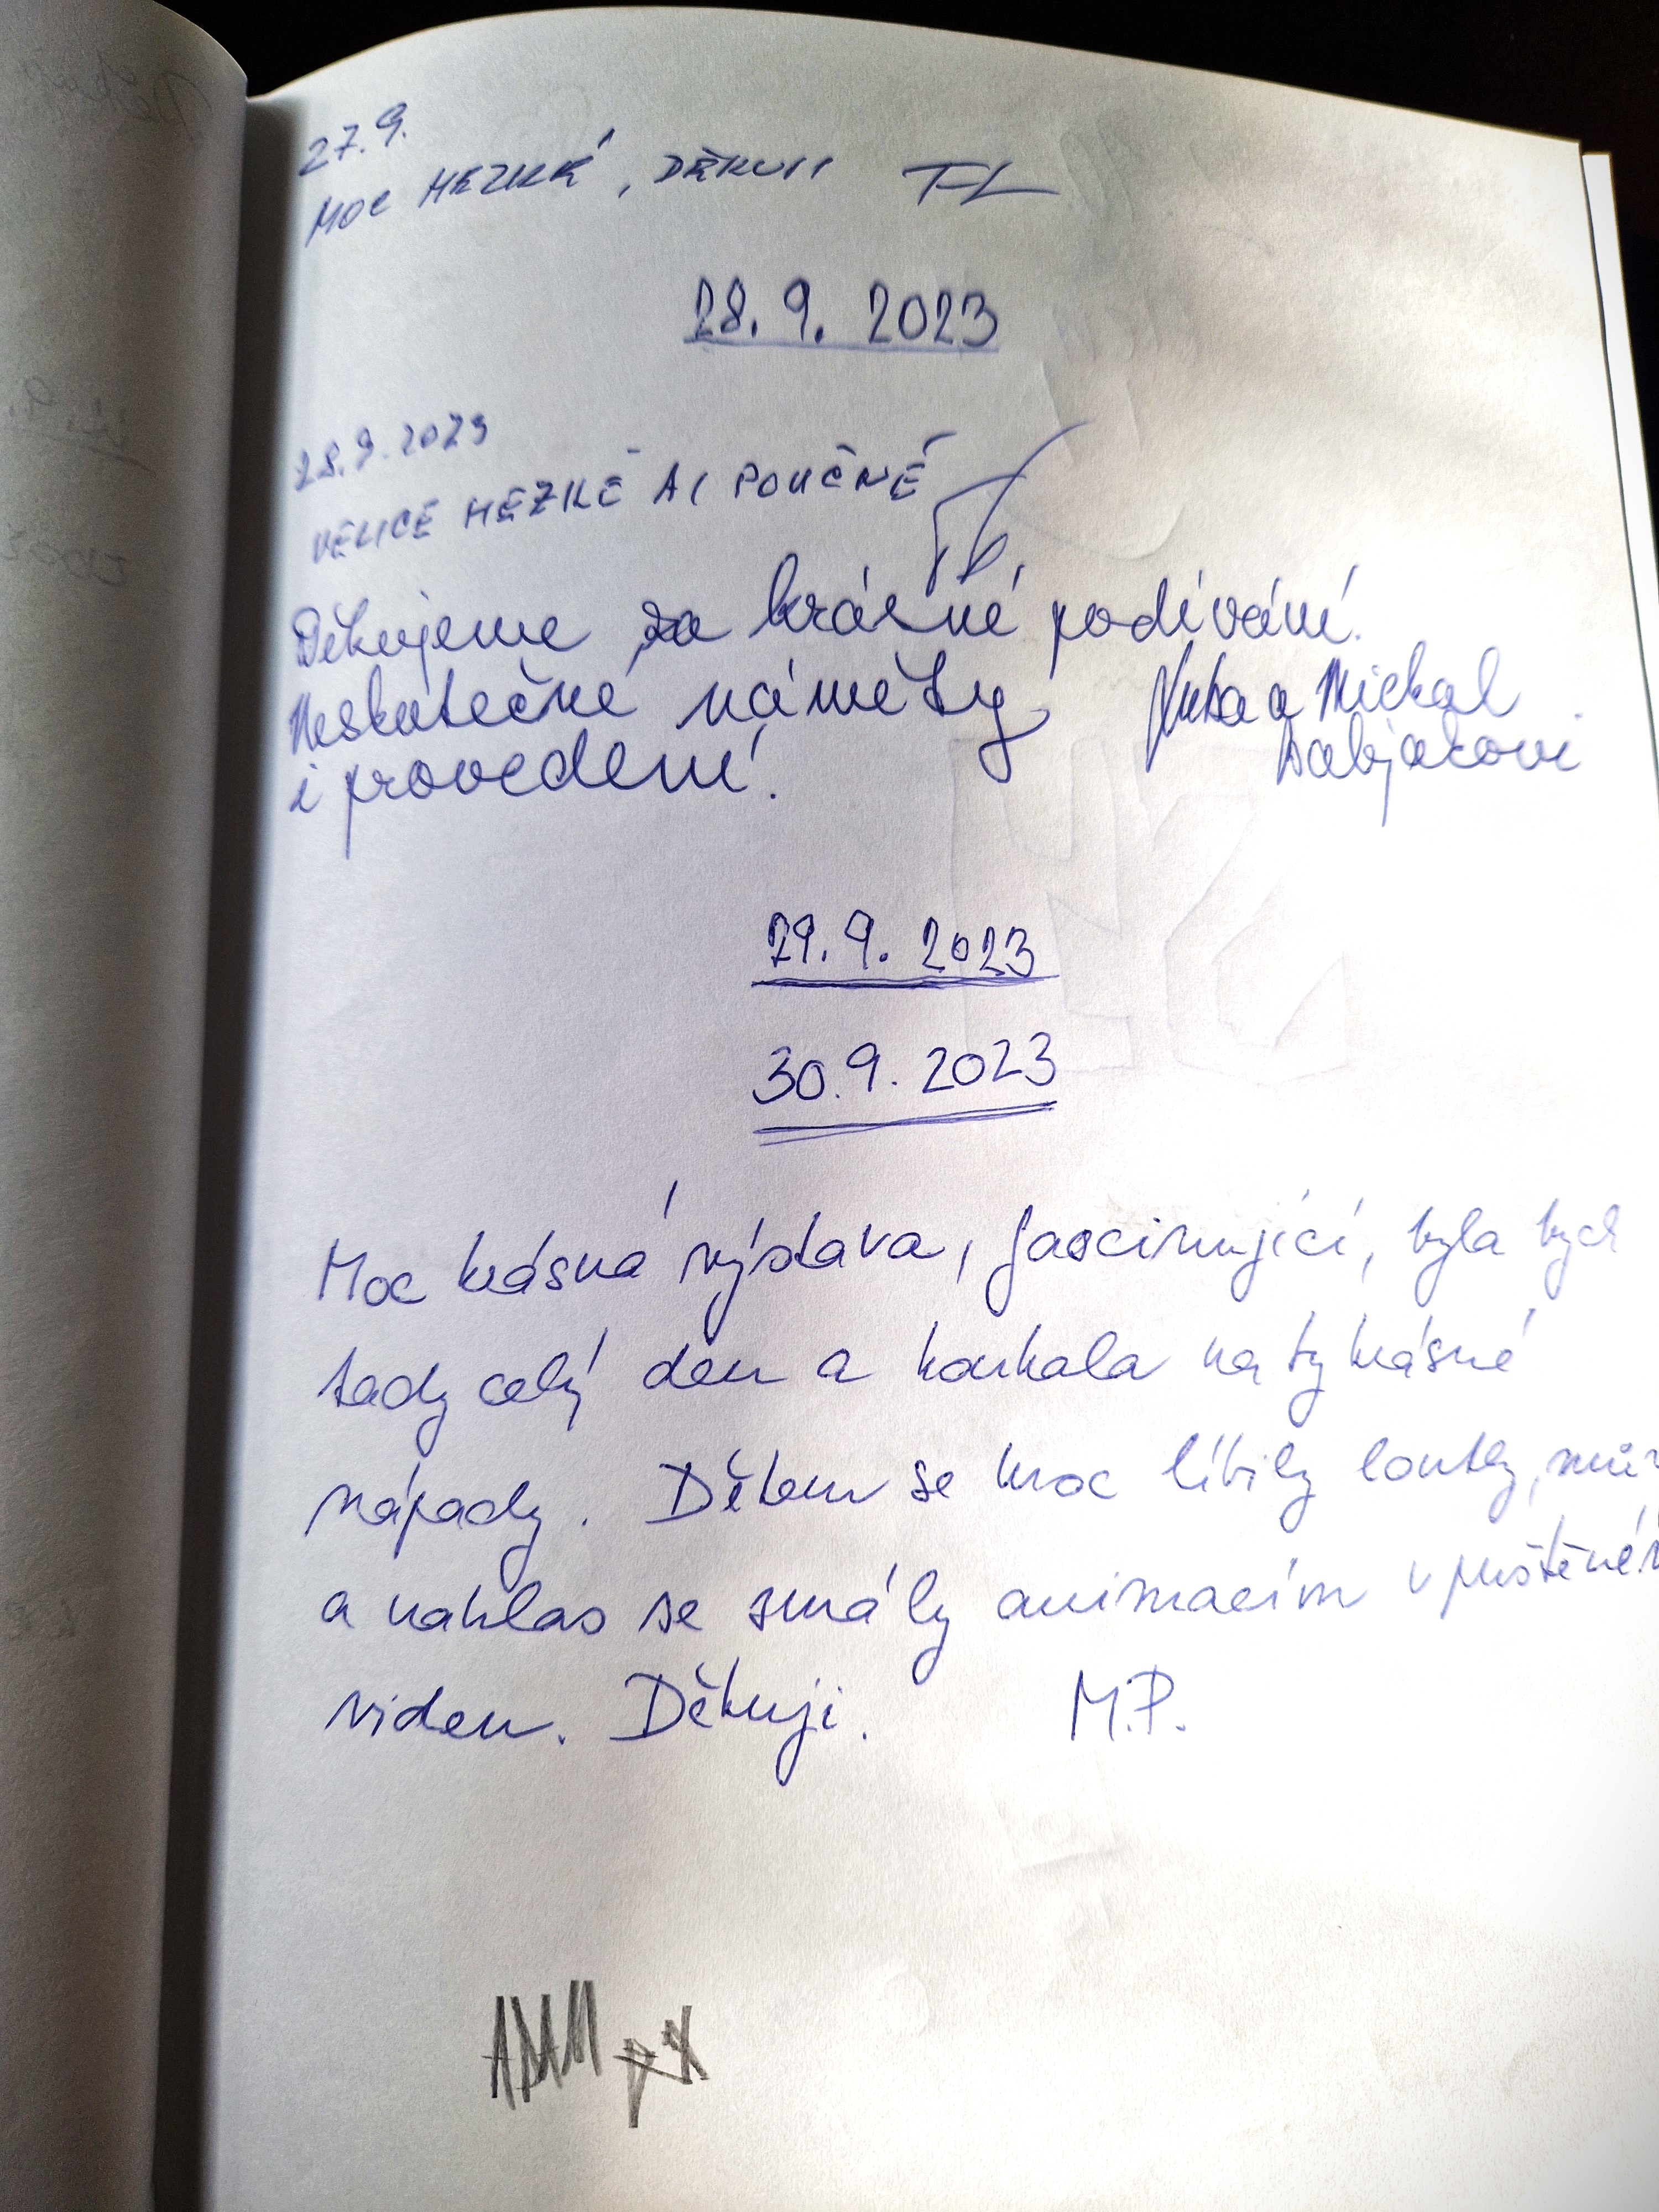 27.9.
MOC HEZKÉ, DĚKUJI TL
28. 9. 2023
28.9.2023
VELICE HEZKÉ A I POUČNÉ
Děkujeme za krásné podívání.
Neskutečné náměty a Michal
i provedení!
29. 9. 2023
30. 9. 2023
Moc krásná výstava, fascinující, byla bych
tady celý den a koukala na ty krásné
nápady. Dětem se moc líbily loutky,
a nahlas se smály animacím v puštěném
videu. Děkuji. M.P.
ADAM